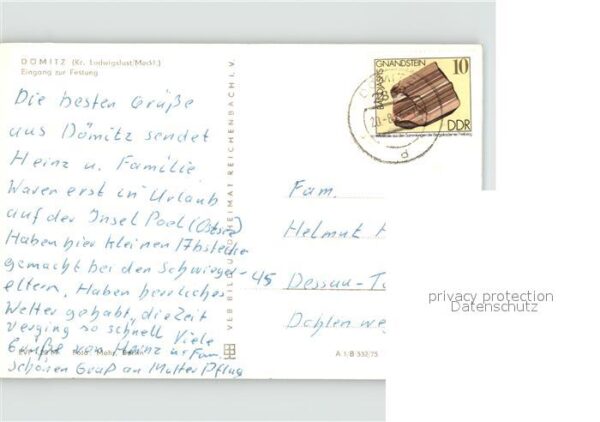 DÖMITZ (Kr. Ludwigslust/Meckl.)
Eingang zur Festung
Die besten Grüße
aus Dömitz sendet
Heinz u. Familie.
Waren erst in Urlaub
auf der Insel Poel (Ostsee)
Haben hier kleinen
gemacht bei den Schwieger-
eltern. Haben herrliches
Wetter gehabt, die Zeit
verging so schnell Viele
Grüße von Heinz u. Fam.
Schönen Gruß an Mutter Pflug
VEB BILD UND HEIMAT REICHENBACH I. V.
BANDJASPIS GNANDSTEIN
10
DDR
Fam.
Helmut
45 Dessau-
privacy protection
Datenschutz
A 1/B 552/75